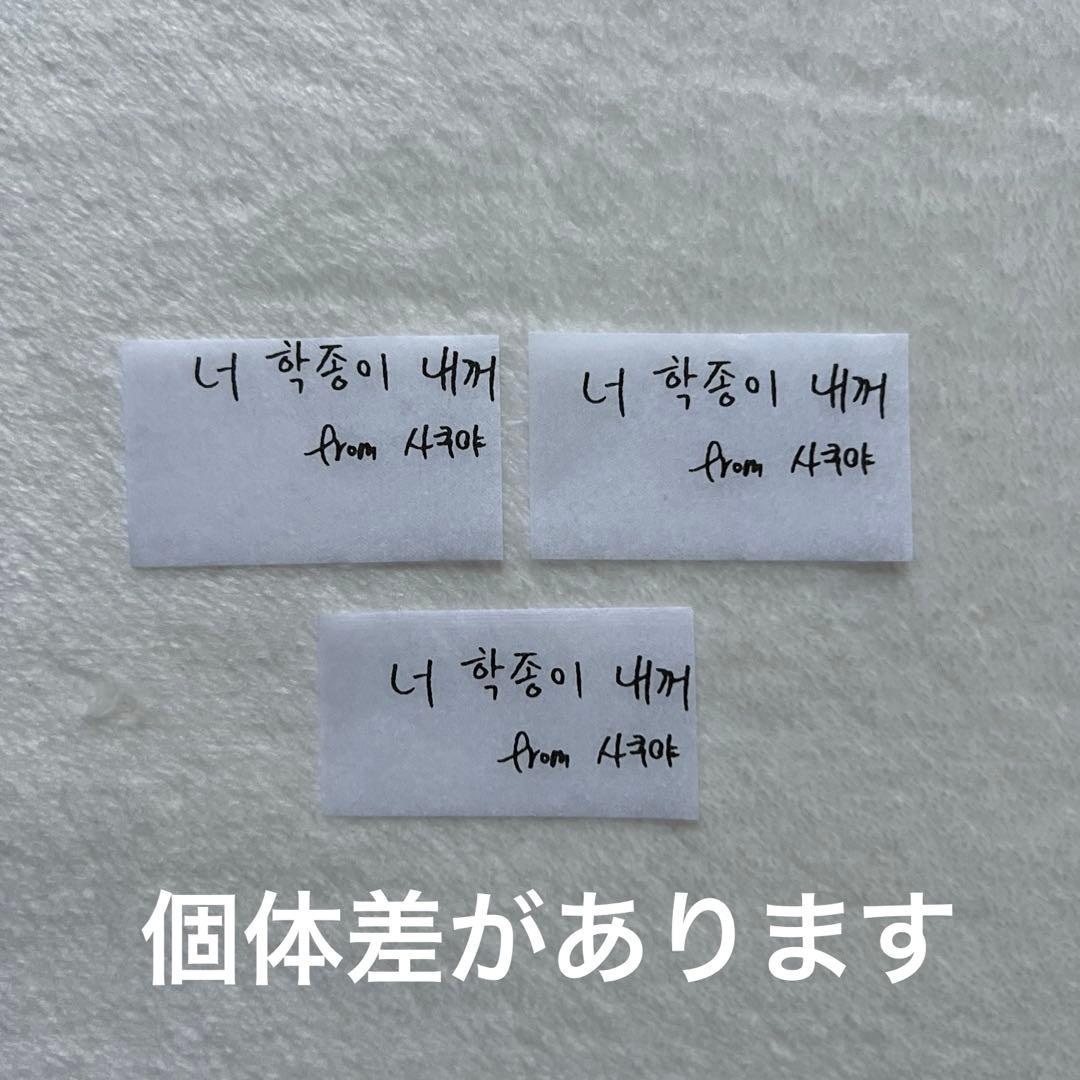 너 학종이 내꺼
from 사쿠야
너 학종이 내꺼
from 사쿠야
너 학종이 내꺼
from 사쿠야
個体差があります